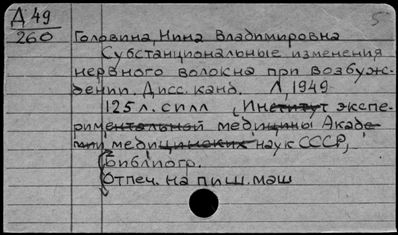 Д 49
260
5
Головина, Нина Владимировна
Субстанциональные изменения
нервного волокна при возбуж-
дении. Дисс. канд. Л, 1949
125 л. с илл (Институт экспе-
риментальной медицины Акаде-
мии медицинских наук СССР)
Библиогр.
Отпеч. на пиш. маш